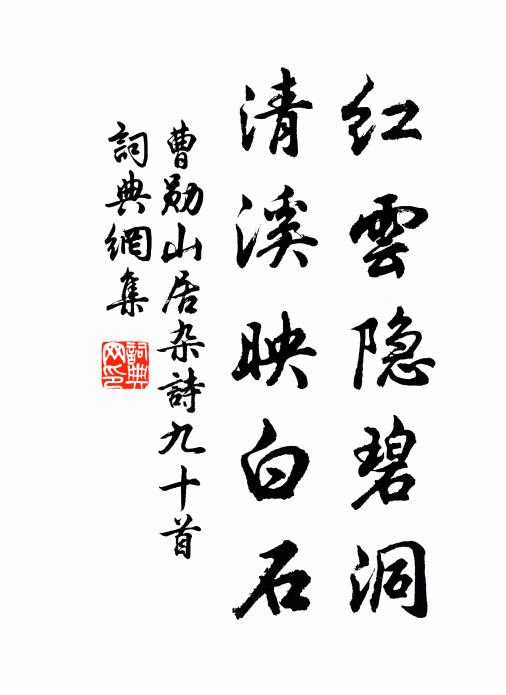 红雲隐碧洞
清溪映白石
曹勋山居杂詩九十首
詞典網集
詞典网印